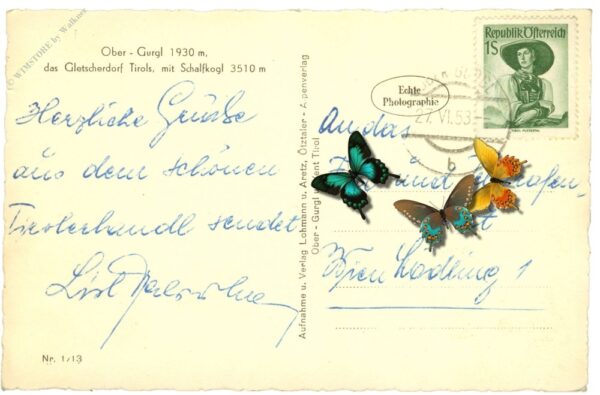 © WIMSTORE by Walkner
Ober - Gurgl 1930 m,
das Gletscherdorf Tirols, mit Schalfkogl 3510 m
Herzliche Grüße
aus dem schönen
Tirolerlandl sendet
Nr. 1/13
Aufnahme u. Verlag Lohmann u. Aretz, Ötztaler - A penverlag
Ober - Gurgl u ent Tirol
Echte
Photographie
Republik Österreich
1S
27.VI.53
b
An das
Wien
1